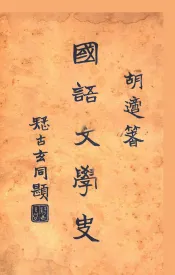 胡適著
國語文學史
疑古玄同題